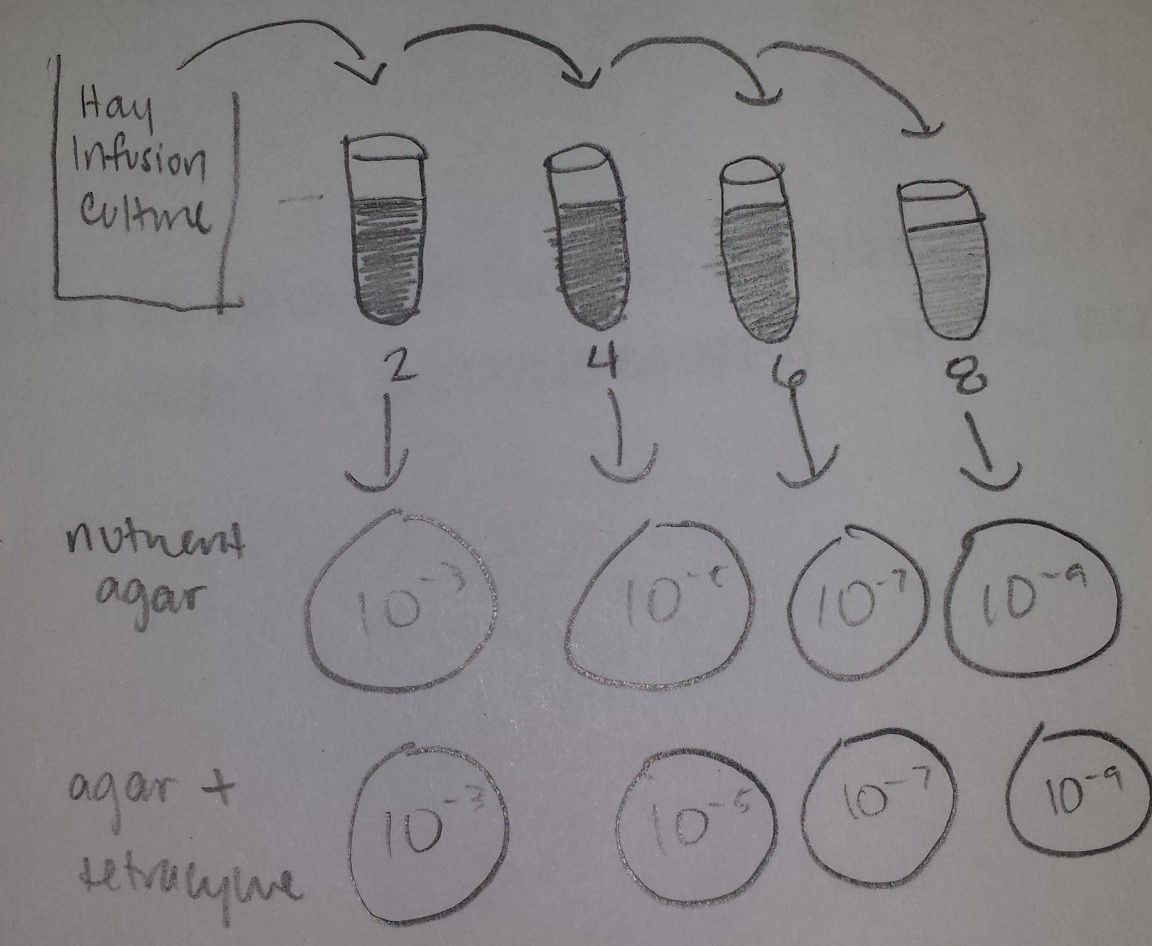 Hay
Infusion
Culture
2 4 6 8
nutrient
agar
10⁻³ 10⁻⁵ 10⁻⁷ 10⁻⁹
agar +
10⁻³ 10⁻⁵ 10⁻⁷ 10⁻⁹